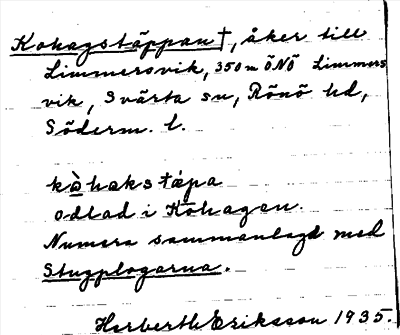 Kohagstäppan†, åker till
Limmersvik, 350 m ÖNÖ Limmers
vik, Svärta sn, Rönö hd,
Söderm. l.
kò̱hakstɛ́pa
odlad i Kohagen.
Numera sammanlagd med
Stugplogarna.
Herberth Eriksson 1935.